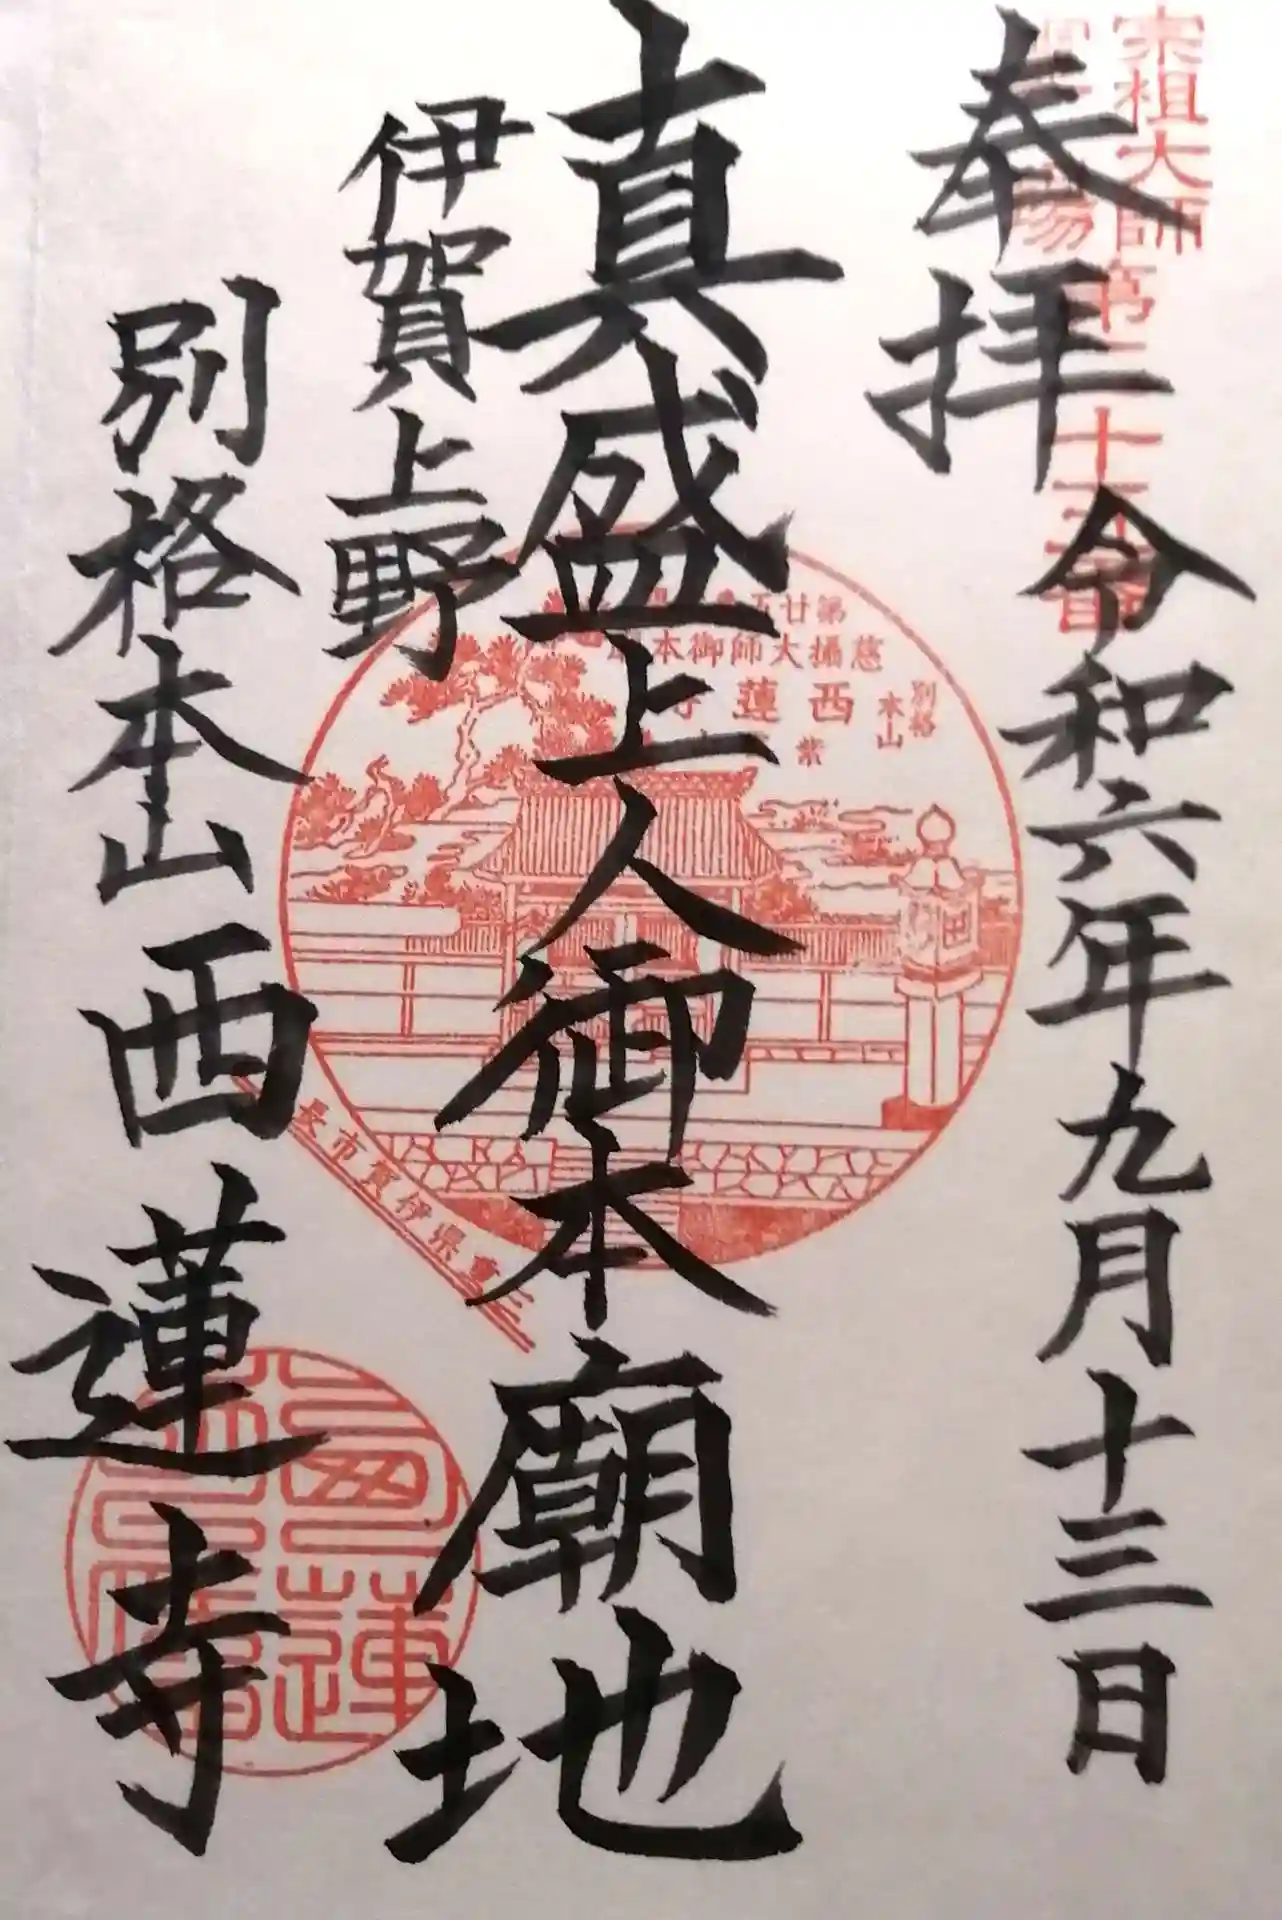 奉拝
令和六年九月十三日
宗祖大師
第二十五番
真盛上人御本廟地
伊賀上野
別格本山西蓮寺
第廿五
慈攝大師御本廟
別格
本山
西蓮寺
紫
三重県伊賀市長